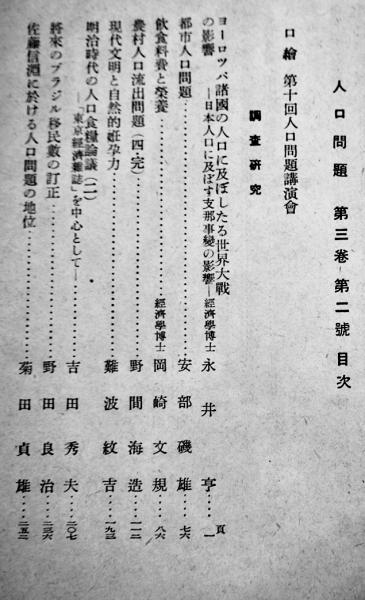 人口問題 第三卷 第二號 目次
口繪 第十回人口問題講演會
調査研究
頁
ヨーロツパ諸國の人口に及ぼしたる世界大戰
の影響―日本人口に及ぼす支那事變の影響―經濟學博士 永井 亨……一
都市人口問題……………安部磯雄……七六
飲食料費と榮養……………經濟學博士 岡崎文規……八六
農村人口流出問題(四・完)……………野間海造……一一二
現代文明と自然的姙孕力……………難波紋吉……一九三
明治時代の人口食糧論議(二)
―「東京經濟雜誌」を中心として―……吉田秀夫……二〇七
將來のブラジル移民數の訂正……………野田良治……二三六
佐藤信淵に於ける人口問題の地位……………菊田貞雄……二五三